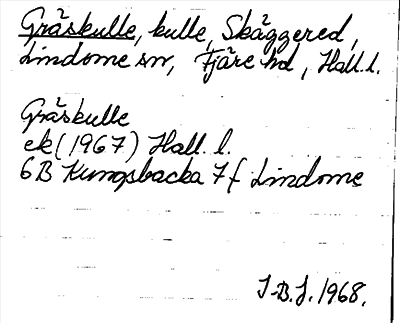 Gråskulle, kulle, Skäggered,
Lindome sn, Fjäre hd, Hall. l.
Gråskulle
ek (1967) Hall. l.
6B Kungsbacka 7f Lindome
I.B.J. 1968.